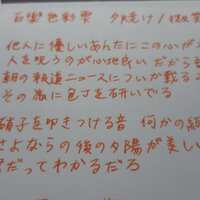 百樂 色彩雫 夕焼け /
他人に優しいあんたにこの心が
人を呪うのが心地良い だから
朝の報道ニュースにいつか載る
その為に包丁を研いでる
硝子を叩きつける音 何かの
さよならの後の夕陽が美しい
君だってわかるだろ